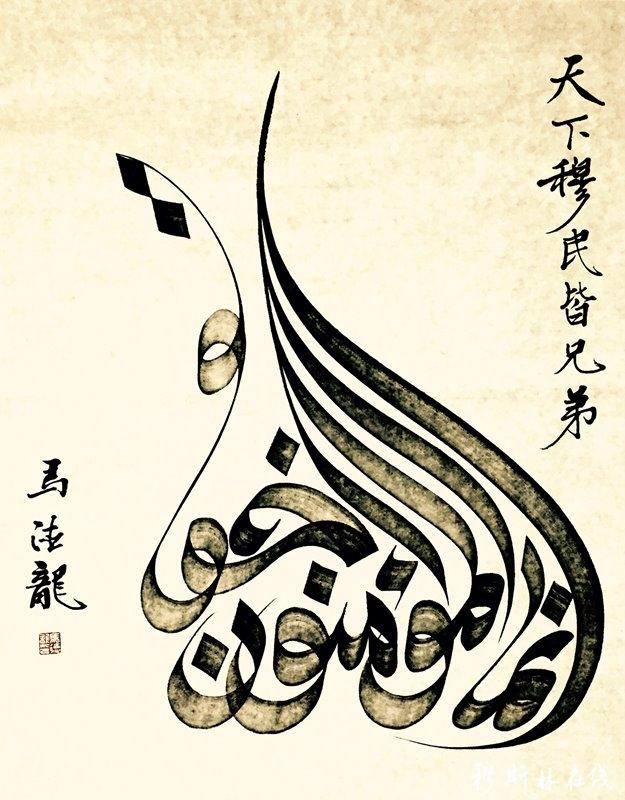 天下穆民皆兄弟
إنما المؤمنون إخوة
马法龍
穆斯林在线